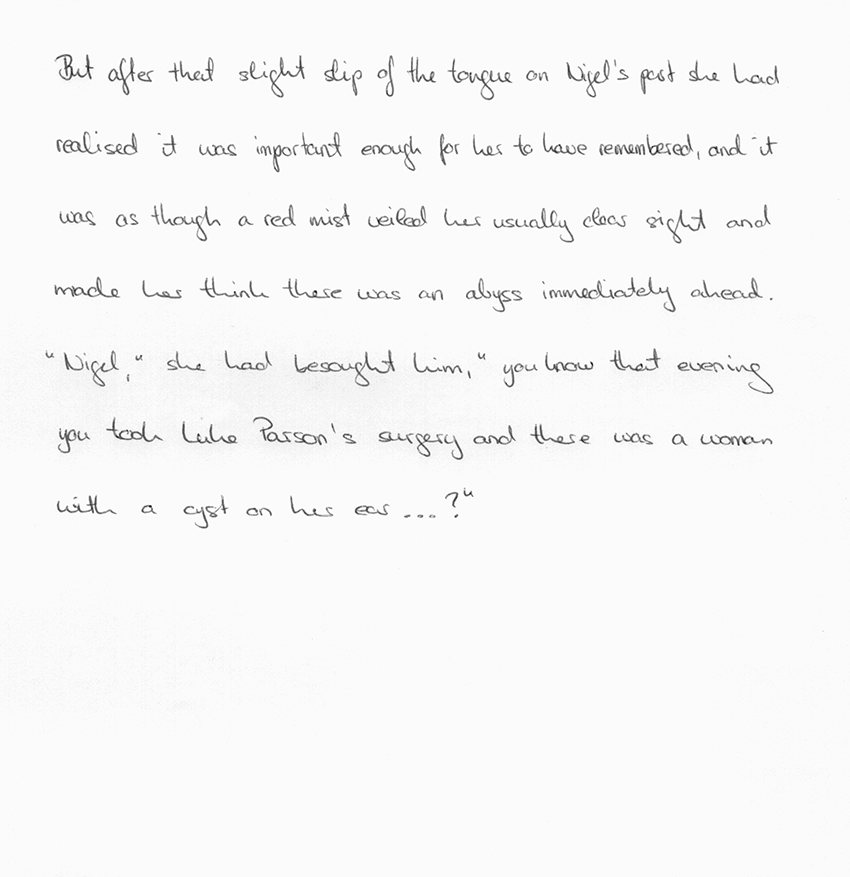 But after that slight slip of the tongue on Nigel's part she had
realised it was important enough for her to have remembered, and it
was as though a red mist veiled her usually clear sight and
made her think there was an abyss immediately ahead.
"Nigel," she had besought him, "you know that evening
you took Luke Parson's surgery and there was a woman
with a cyst on her ear ...?"